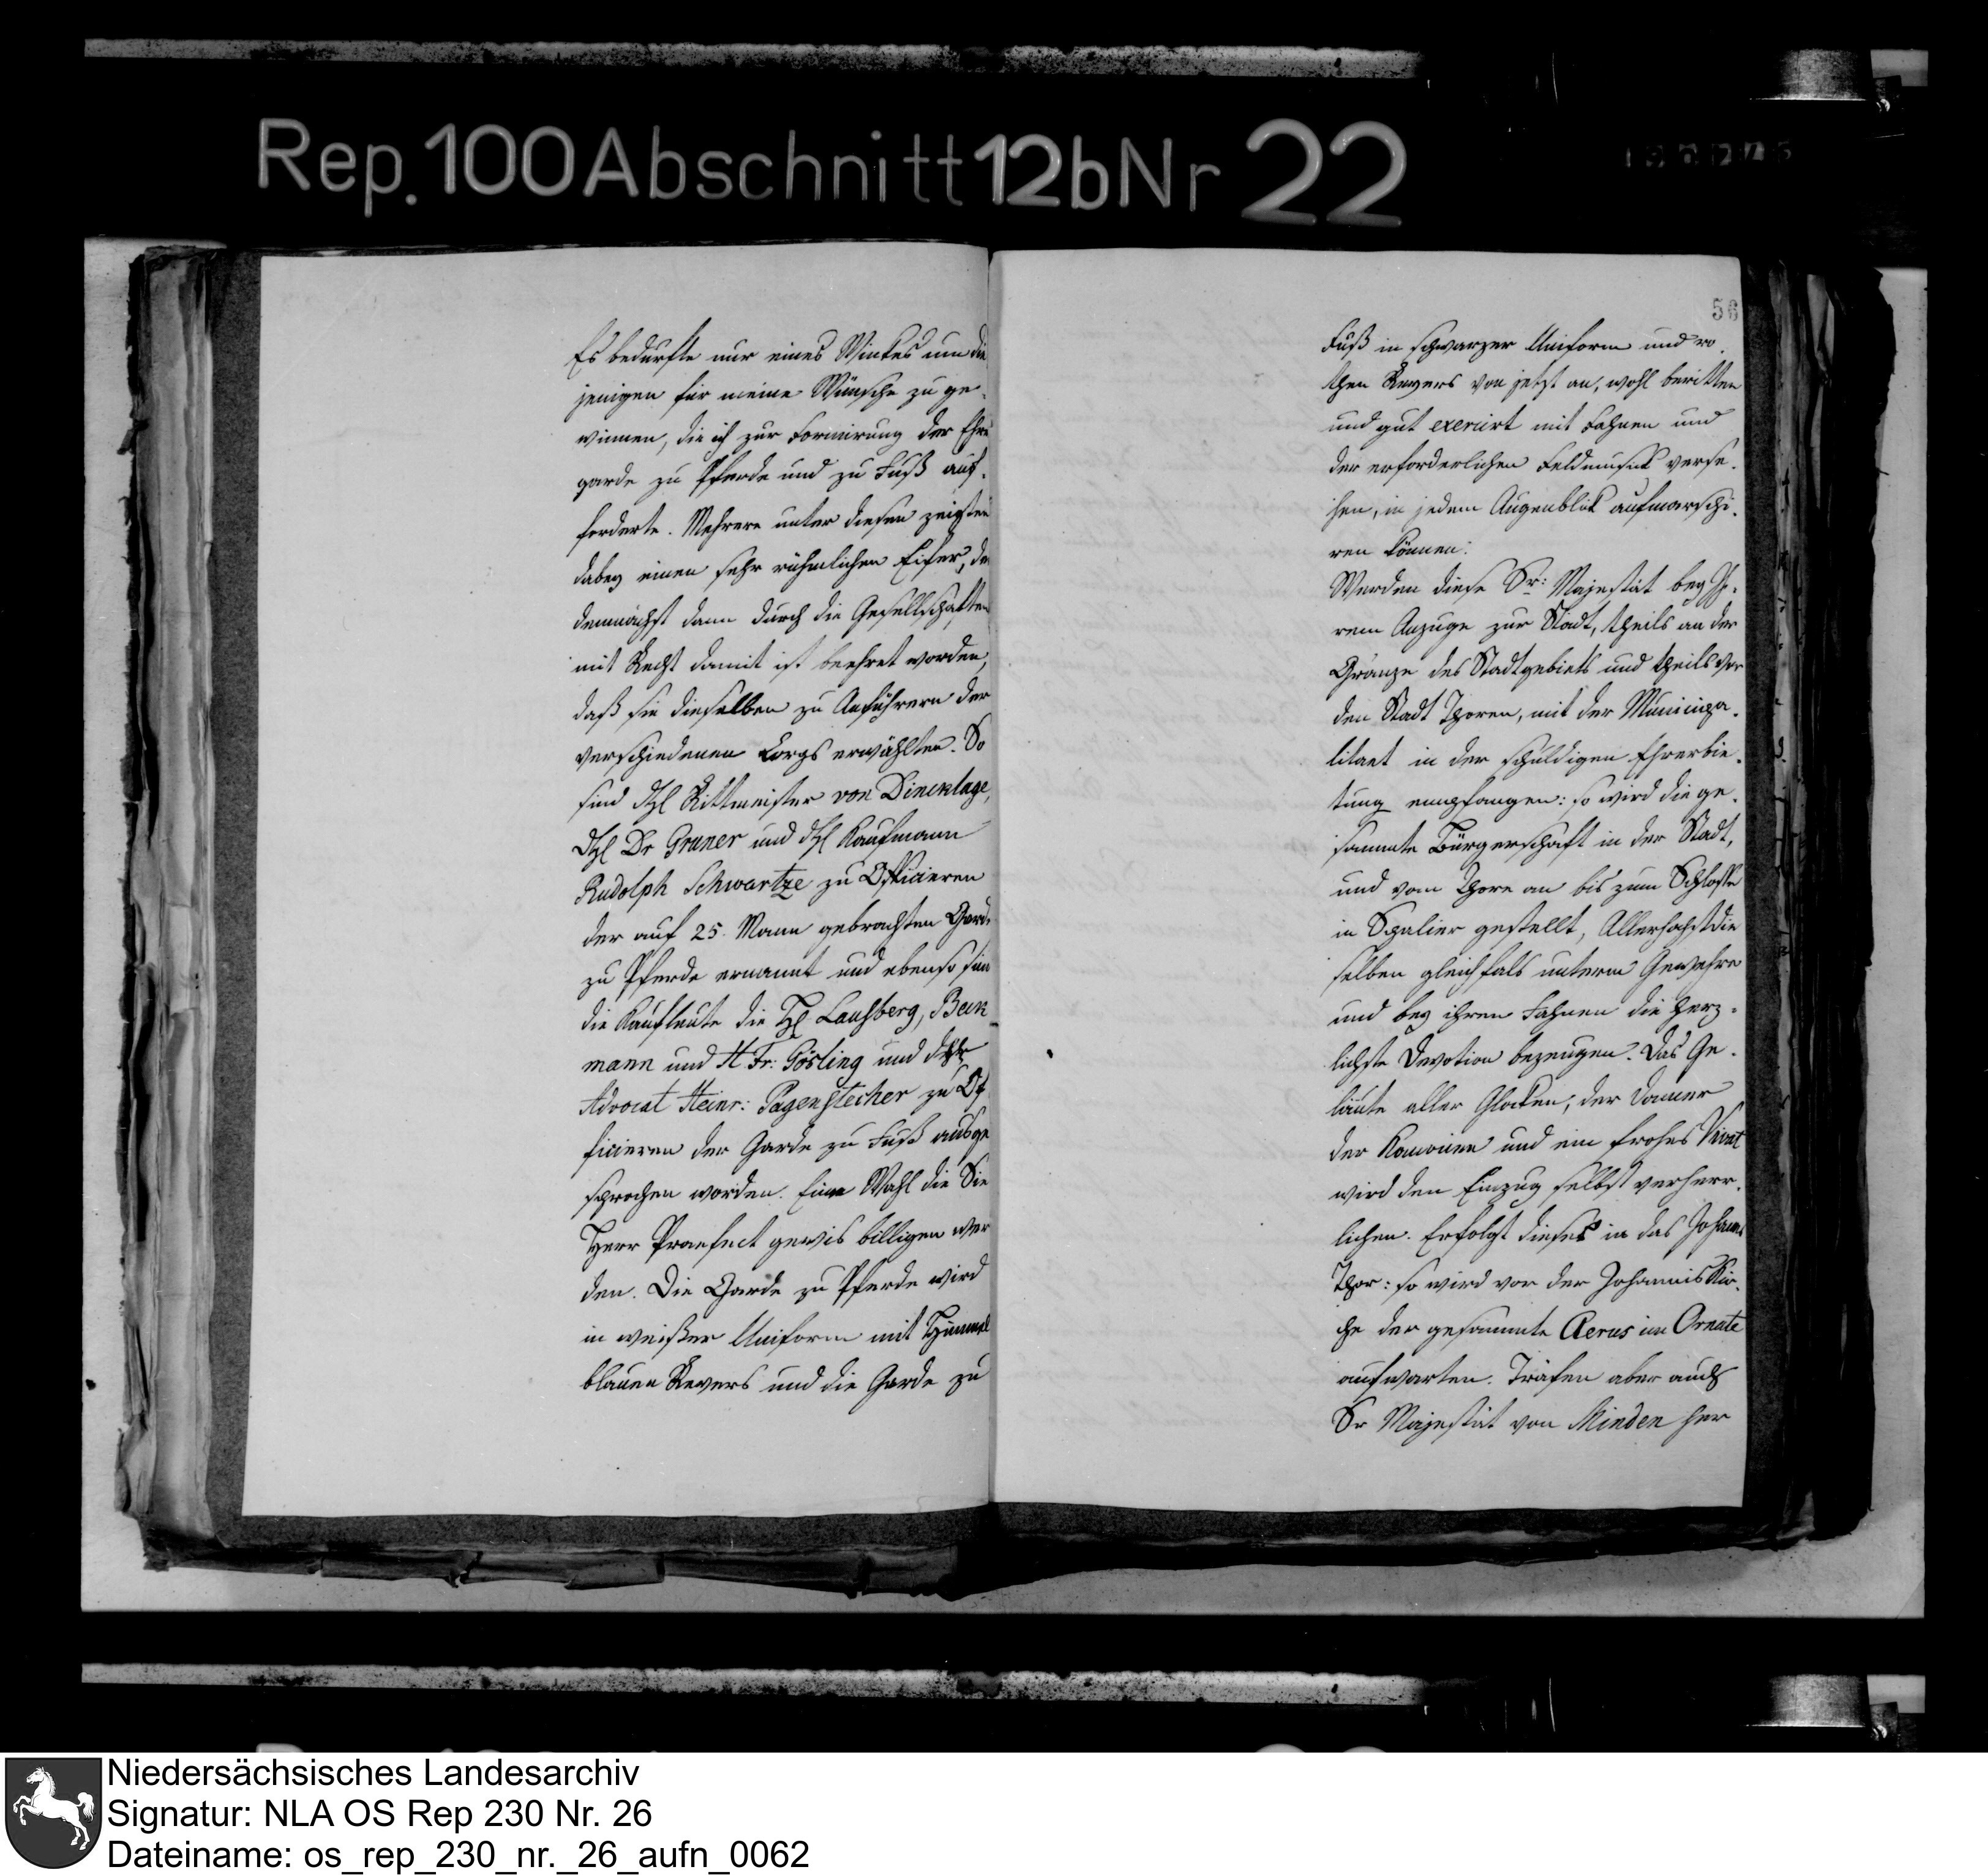 Rep. 100 Abschnitt 12b Nr 22
Es bedurfte nur eines Winkes um die
jenigen für meine Wünsche zu ge-
winnen, die ich zur Formirung der Ehren
garde zu Pferde und zu Fuß auf-
forderte. Mehrere unter diesen zeigten
dabey einen sehr rühmlichen Eifer, der
demnächst dann durch die Gesellschaften
mit Recht damit ist beehret worden,
daß sie dieselben zu Anführern der
verschiedenen Corps erwählten. So
sind Rittmeister von Dincklage,
Dr Gruner und Kaufmann
Rudolph Schwartze zu Officieren
der auf 25. Mann gebrachten Garde
zu Pferde ernannt und ebenso sind
die Kaufleute die Lausberg, Beck
mann und H. Fr: Gösling und
Advocat Heinr: Pagenstecher zu Of
ficieren der Garde zu Fuß ausge
sprochen worden. Eine Wahl die Sie
Herr Praefect gewis billigen wer
den. Die Garde zu Pferde wird
in weißer Uniform mit Himmel
blauen Revers und die Garde zu
56
Fuß in schwarzer Uniform und ro-
then Revers von jetzt an, wohl beritten
und gut exercirt mit Fahnen und
der erforderlichen Feldmusik verse-
hen, in jedem Augenblik aufmarschi-
ren können.
Werden diese Sr: Majestät bey Ih-
rem Anzuge zur Stadt, theils an der
Gränze des Stadtgebiets und theils vor
den Stadt Thoren, mit der Municipa-
litaet in der schuldigen Ehrerbie-
tung empfangen: so wird die ge-
sammte Bürgerschaft in der Stadt,
und vom Thore an bis zum Schlosse
in Spalier gestellt, Allerhöchstdie
selben gleichfals unterm Gewehre
und bey ihren Fahnen die herz-
lichste Devotion bezeugen. Das Ge-
läute aller Glocken, der Donner
der Kanonen und ein frohes Vivat
wird den Einzug selbst verherr-
lichen. Erfolgt dieser in das Johannis
Thor: so wird vor der Johannis Kir-
che der gesammte Clerus im Ornate
aufwarten. Träfen aber auch
Sr Majestät von Minden her
Niedersächsisches Landesarchiv
Signatur: NLA OS Rep 230 Nr. 26
Dateiname: os_rep_230_nr._26_aufn_0062